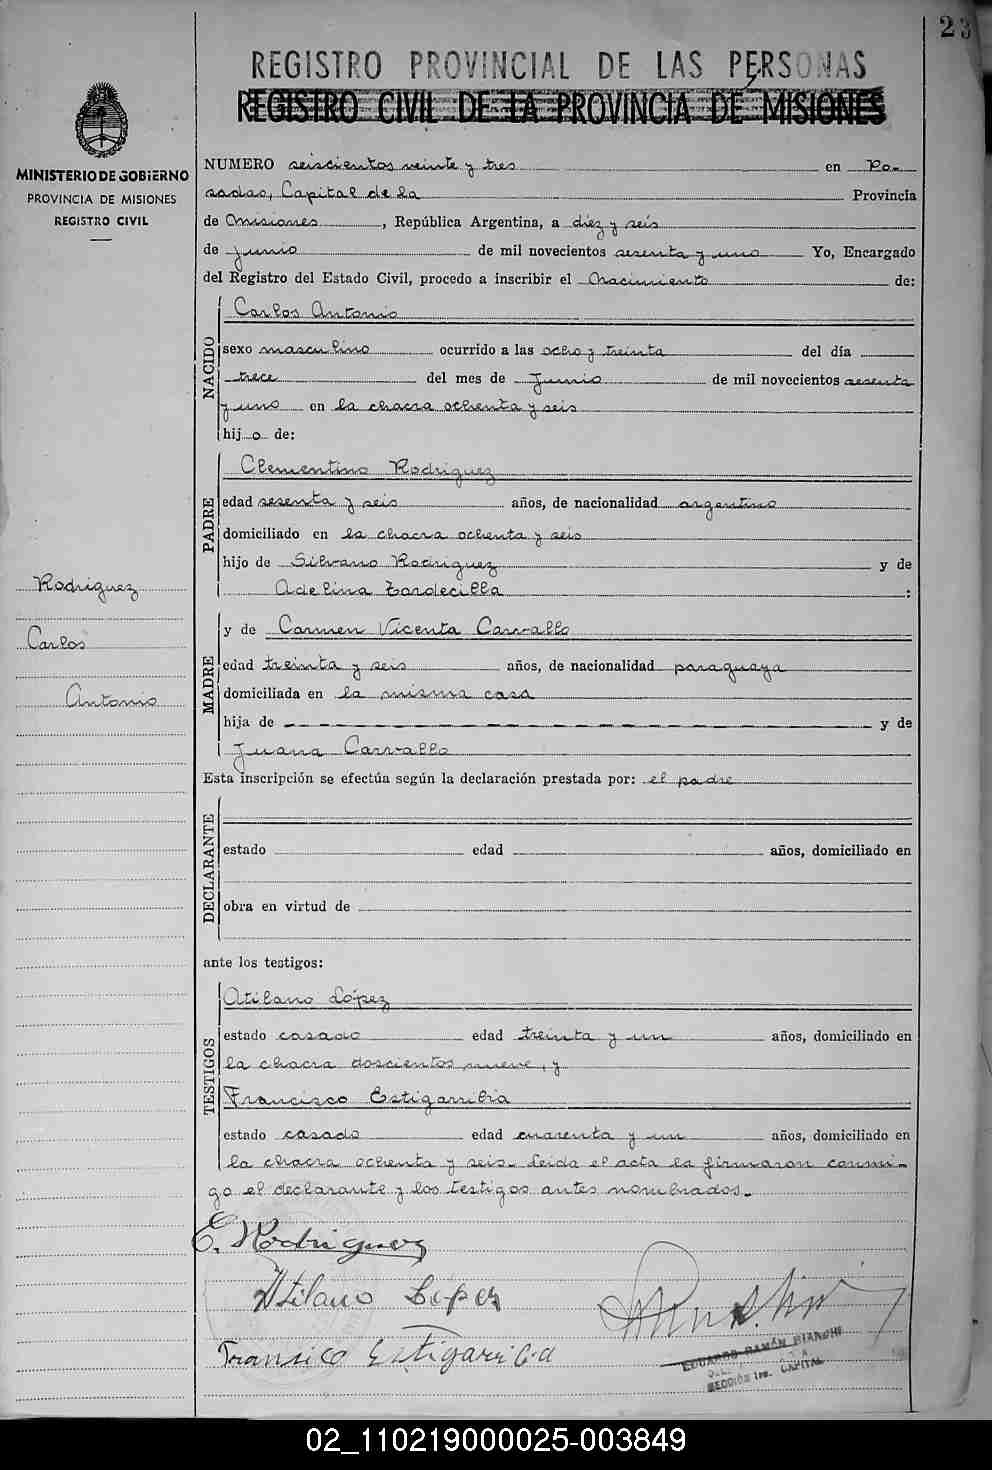 23
REGISTRO PROVINCIAL DE LAS PERSONAS
REGISTRO CIVIL DE LA PROVINCIA DE MISIONES
MINISTERIO DE GOBIERNO
PROVINCIA DE MISIONES
REGISTRO CIVIL
NUMERO seiscientos veinte y tres en Po-
sadas, Capital de la Provincia
de Misiones, República Argentina, a diez y seis
de Junio de mil novecientos sesenta y uno Yo, Encargado
del Registro del Estado Civil, procedo a inscribir el Nacimiento de:
NACIDO
Carlos Antonio
sexo masculino ocurrido a las ocho y treinta del día
trece del mes de Junio de mil novecientos sesenta
y uno en la chacra ochenta y seis
hijo de:
PADRE
Clementino Rodriguez
edad sesenta y seis años, de nacionalidad argentino
domiciliado en la chacra ochenta y seis
hijo de Silvano Rodriguez y de
Adelina Zardecilla :
MADRE
y de Carmen Vicenta Carvallo
edad treinta y seis años, de nacionalidad paraguaya
domiciliada en la misma casa
hija de - - - - - - - - - - y de
Juana Carvallo
Rodriguez
Carlos
Antonio
Esta inscripción se efectúa según la declaración prestada por: el padre
DECLARANTE
estado edad años, domiciliado en
obra en virtud de
ante los testigos:
TESTIGOS
Atilano López
estado casado edad treinta y un años, domiciliado en
la chacra doscientos nueve, y
Francisco Estigarribia
estado casado edad cuarenta y un años, domiciliado en
la chacra ochenta y seis. Leida el acta la firmaron conmi-
go el declarante y los testigos antes nombrados.-
C. Rodriguez
Atilano Lopez
Fransico Estigarribia
EDUARDO RAMÓN BIANCHI
SECCIÓN 1ra. CAPITAL
02_110219000025-003849